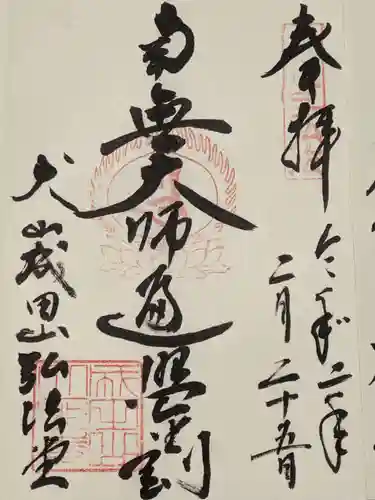 奉拝
令和二年
二月二十五日
南無大師遍照金剛
犬山成田山弘法堂